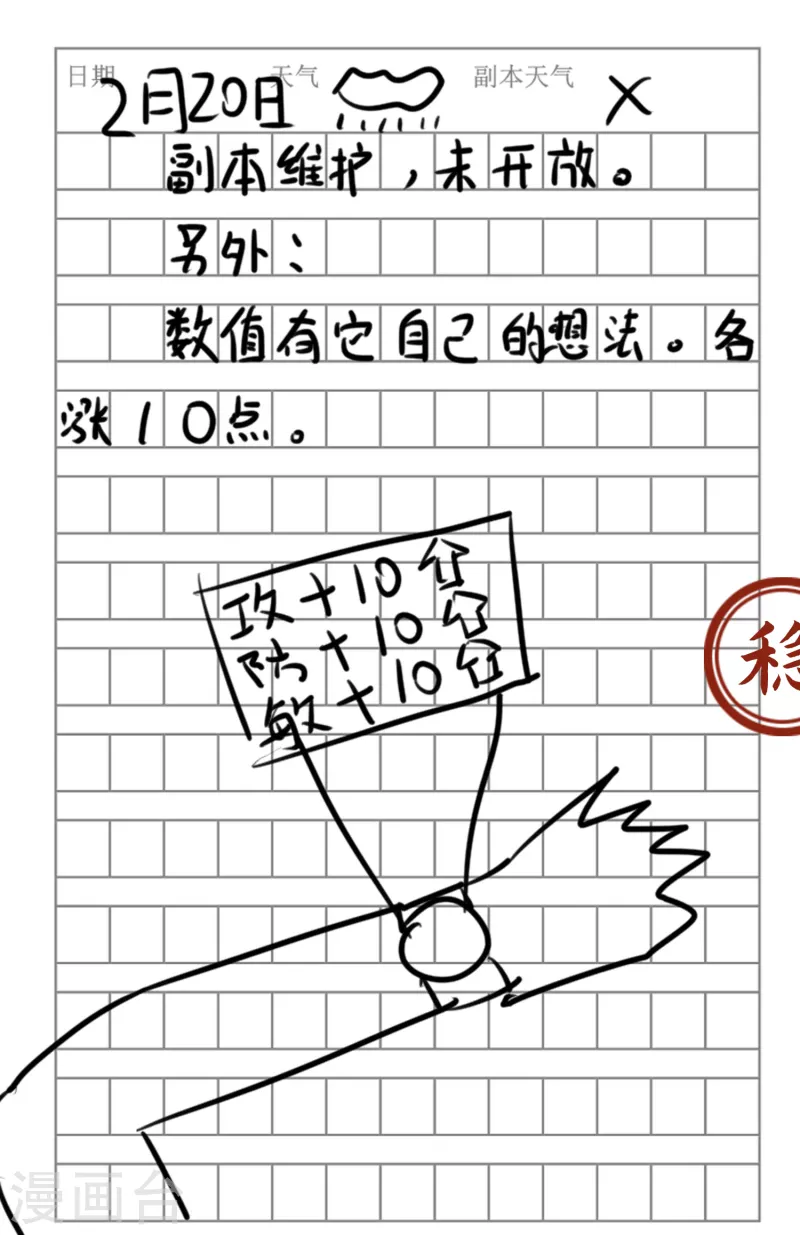 日期 2月20日 天气 副本天气 X
副本维护,未开放。
另外:
数值有它自己的想法。各
涨10点。
攻+10
防+10
敏+10
稳
漫画台